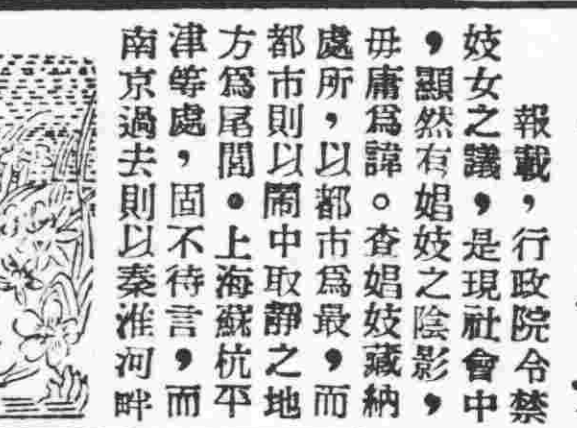 報載，行政院令禁
妓女之議，是現社會中
，顯然有娼妓之陰影，
毋庸爲諱。查娼妓藏納
處所，以都市爲最，而
都市則以鬧中取靜之地
方爲尾閭。上海蘇杭平
津等處，固不待言，而
南京過去則以秦淮河畔